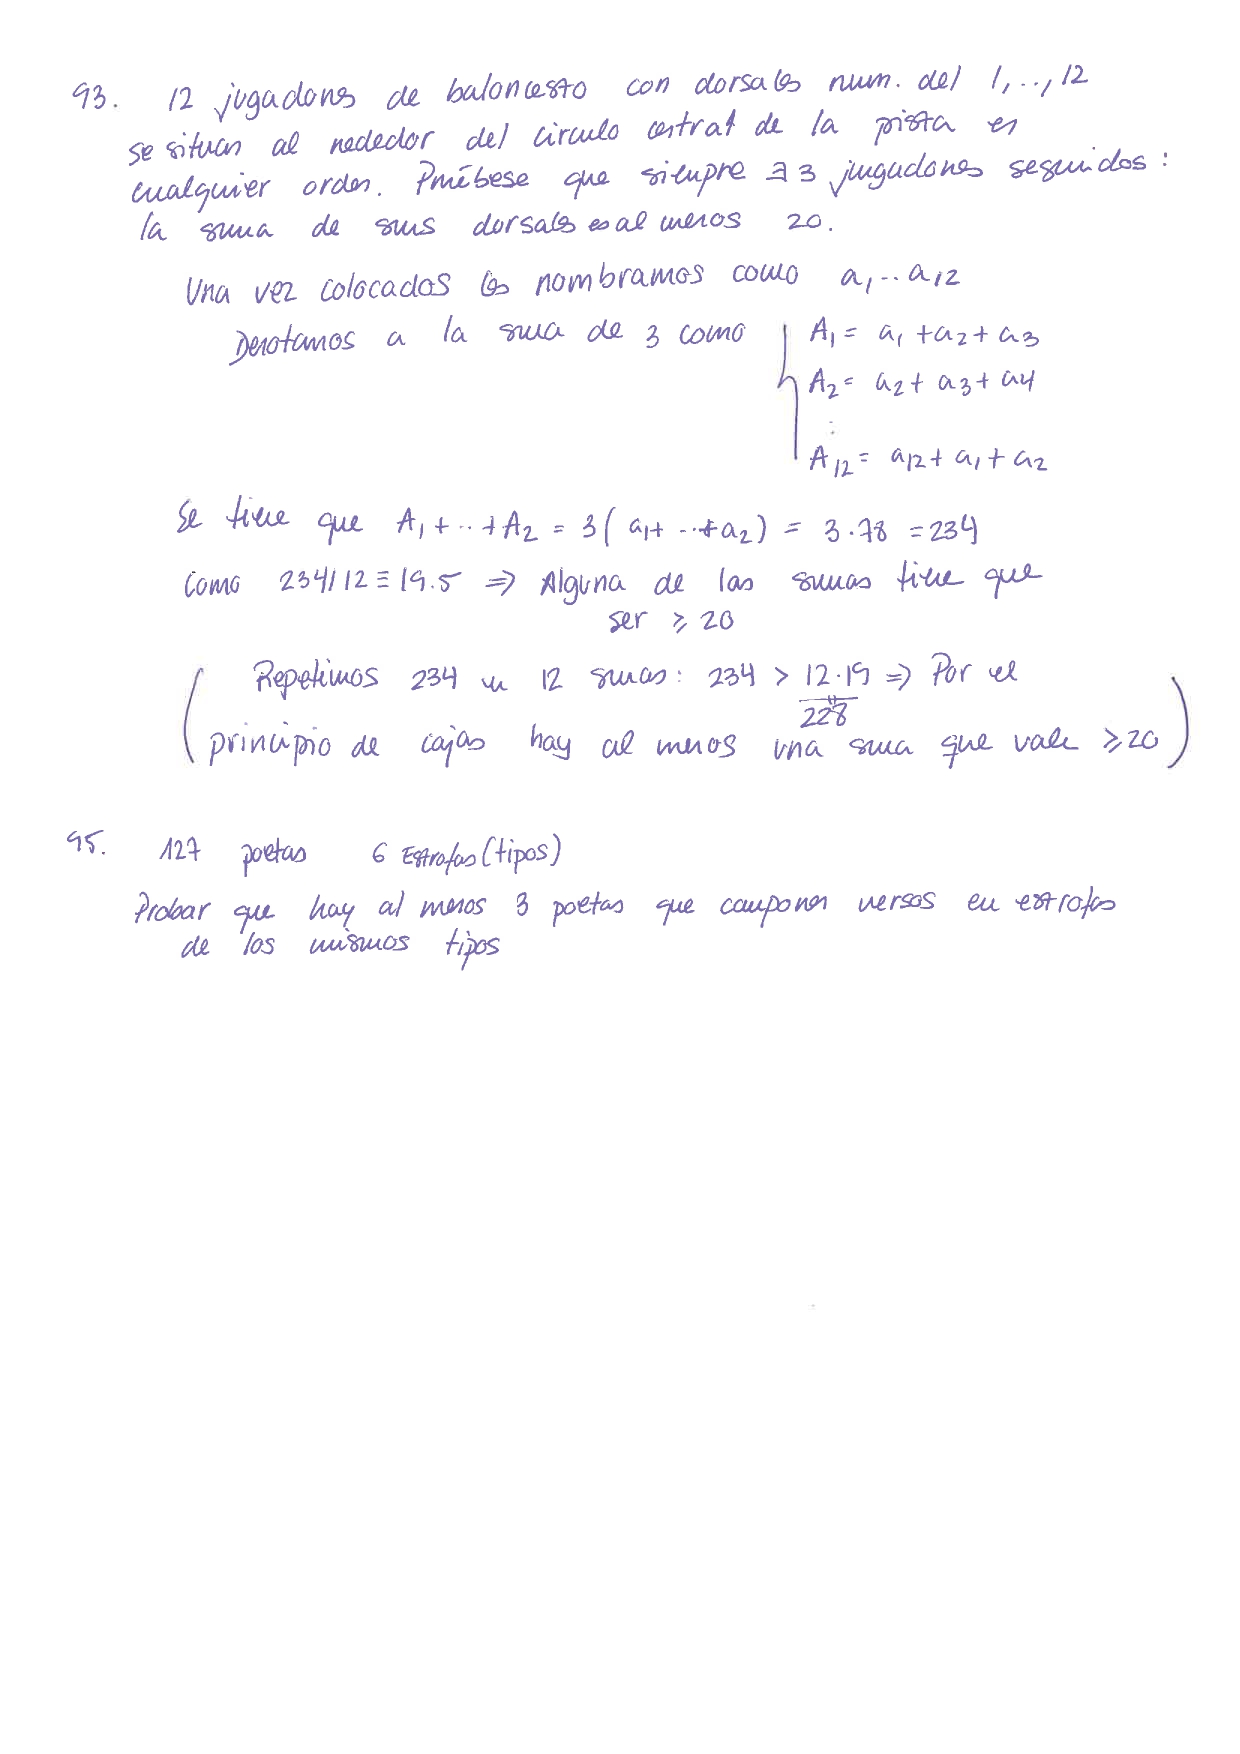 93. 12 jugadores de baloncesto con dorsales num. del 1,..,12
se situan al rededor del circulo central de la pista en
cualquier orden. Pruébese que siempre ∃ 3 jugadores seguidos :
la suma de sus dorsales es al menos 20.
Una vez colocados los nombramos como a₁..a₁₂
Denotamos a la suma de 3 como { A₁ = a₁ + a₂ + a₃
A₂ = a₂ + a₃ + a₄
:
A₁₂ = a₁₂ + a₁ + a₂
Se tiene que A₁ + ..+A₂ = 3(a₁+ ..+a₂) = 3·78 = 234
Como 234/12 ≡ 19.5 ⇒ Alguna de las sumas tiene que
ser ≥ 20
( Repetimos 234 en 12 sumas: 234 > 12·19 ⇒ Por el
228
principio de cajas hay al menos una suma que vale ≥20 )
95. 127 poetas 6 Estrofas (tipos)
Probar que hay al menos 3 poetas que componen versos en estrofas
de los mismos tipos